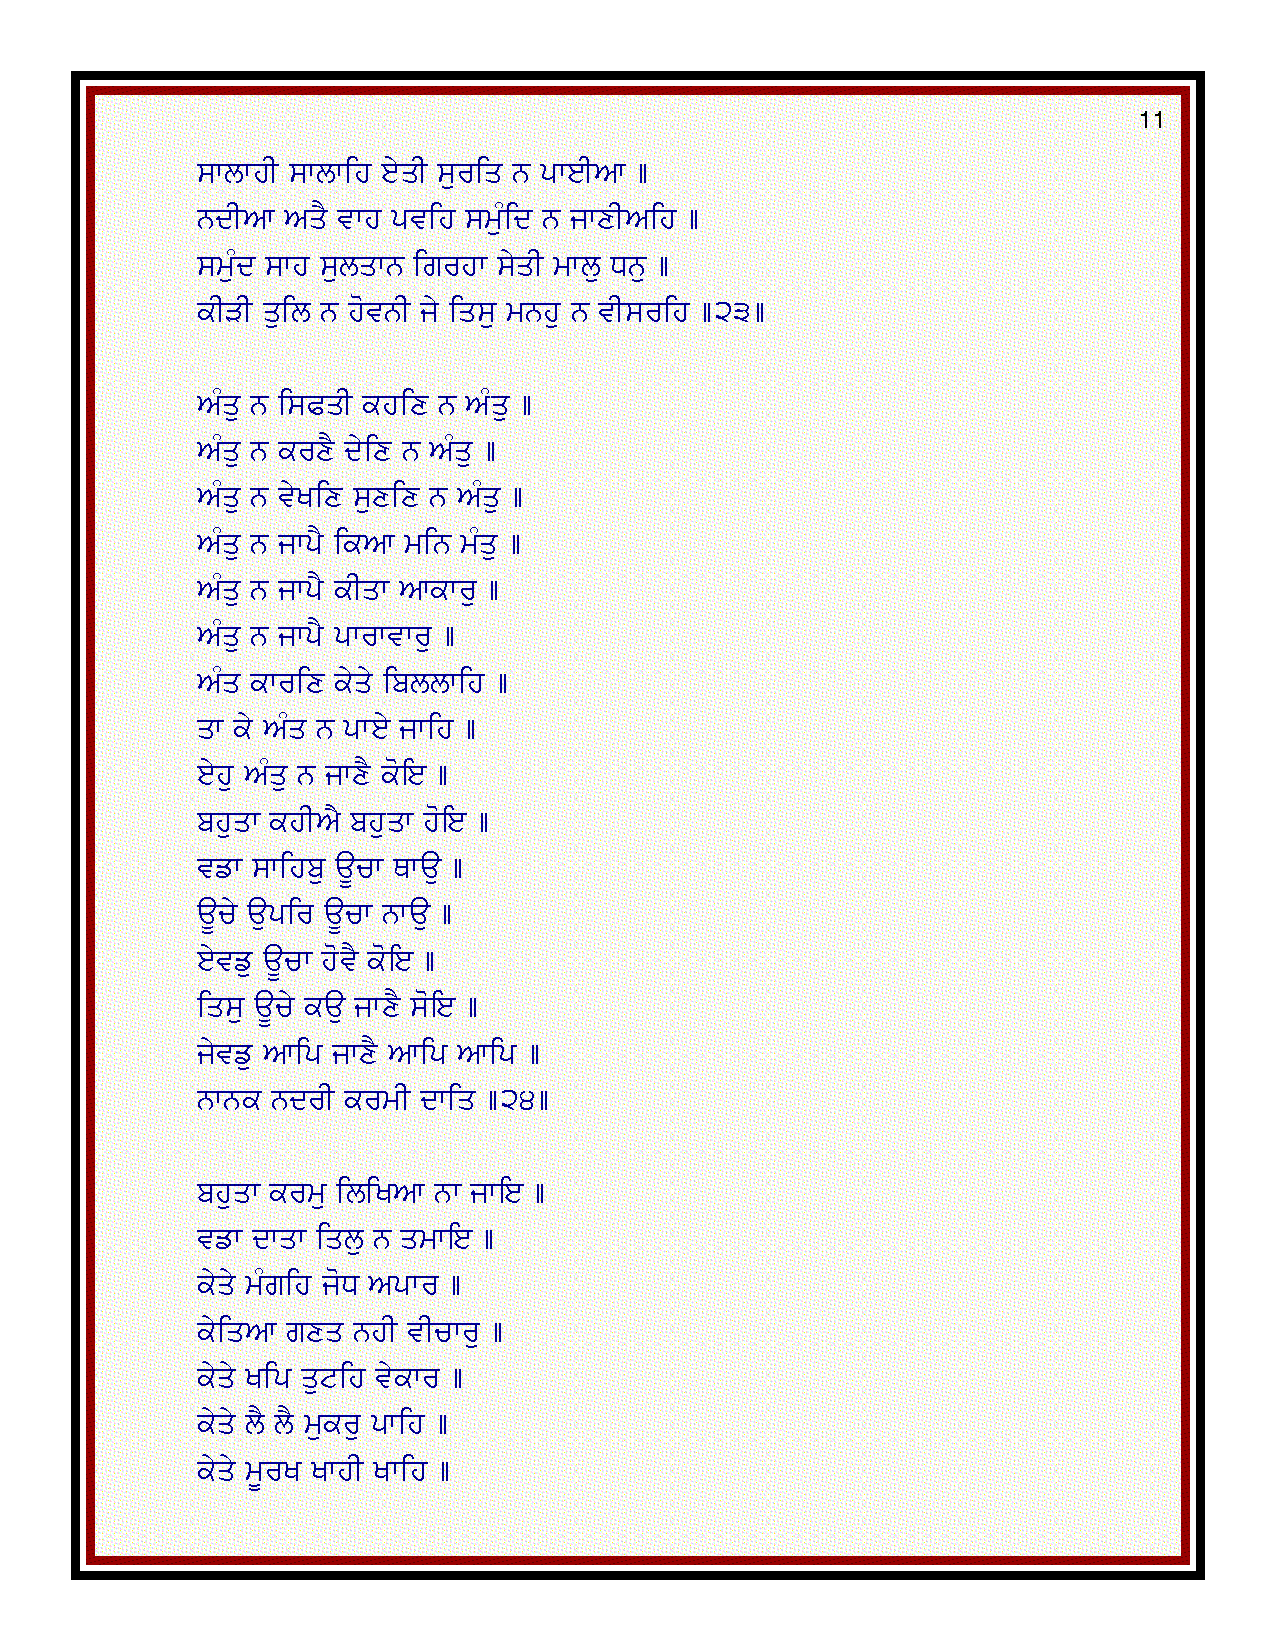 11
ਸਾਲਾਹੀ ਸਾਲਾਹਿ ਏਤੀ ਸੁਰਤਿ ਨ ਪਾਈਆ ॥
ਨਦੀਆ ਅਤੈ ਵਾਹ ਪਵਹਿ ਸਮੁੰਦਿ ਨ ਜਾਣੀਅਹਿ ॥
ਸਮੁੰਦ ਸਾਹ ਸੁਲਤਾਨ ਗਿਰਹਾ ਸੇਤੀ ਮਾਲੁ ਧਨੁ ॥
ਕੀੜੀ ਤੁਲਿ ਨ ਹੋਵਨੀ ਜੇ ਤਿਸੁ ਮਨਹੁ ਨ ਵੀਸਰਹਿ ॥੨੩॥
ਅੰਤੁ ਨ ਸਿਫਤੀ ਕਹਣਿ ਨ ਅੰਤੁ ॥
ਅੰਤੁ ਨ ਕਰਣੈ ਦੇਣਿ ਨ ਅੰਤੁ ॥
ਅੰਤੁ ਨ ਵੇਖਣਿ ਸੁਣਣਿ ਨ ਅੰਤੁ ॥
ਅੰਤੁ ਨ ਜਾਪੈ ਕਿਆ ਮਨਿ ਮੰਤੁ ॥
ਅੰਤੁ ਨ ਜਾਪੈ ਕੀਤਾ ਆਕਾਰੁ ॥
ਅੰਤੁ ਨ ਜਾਪੈ ਪਾਰਾਵਾਰੁ ॥
ਅੰਤ ਕਾਰਣਿ ਕੇਤੇ ਬਿਲਲਾਹਿ ॥
ਤਾ ਕੇ ਅੰਤ ਨ ਪਾਏ ਜਾਹਿ ॥
ਏਹੁ ਅੰਤੁ ਨ ਜਾਣੈ ਕੋਇ ॥
ਬਹੁਤਾ ਕਹੀਐ ਬਹੁਤਾ ਹੋਇ ॥
ਵਡਾ ਸਾਹਿਬੁ ਊਚਾ ਥਾਉ ॥
ਊਚੇ ਉਪਰਿ ਊਚਾ ਨਾਉ ॥
ਏਵਡੁ ਊਚਾ ਹੋਵੈ ਕੋਇ ॥
ਤਿਸੁ ਊਚੇ ਕਉ ਜਾਣੈ ਸੋਇ ॥
ਜੇਵਡੁ ਆਪਿ ਜਾਣੈ ਆਪਿ ਆਪਿ ॥
ਨਾਨਕ ਨਦਰੀ ਕਰਮੀ ਦਾਤਿ ॥੨੪॥
ਬਹੁਤਾ ਕਰਮੁ ਲਿਖਿਆ ਨਾ ਜਾਇ ॥
ਵਡਾ ਦਾਤਾ ਤਿਲੁ ਨ ਤਮਾਇ ॥
ਕੇਤੇ ਮੰਗਹਿ ਜੋਧ ਅਪਾਰ ॥
ਕੇਤਿਆ ਗਣਤ ਨਹੀ ਵੀਚਾਰੁ ॥
ਕੇਤੇ ਖਪਿ ਤੁਟਹਿ ਵੇਕਾਰ ॥
ਕੇਤੇ ਲੈ ਲੈ ਮੁਕਰੁ ਪਾਹਿ ॥
ਕੇਤੇ ਮੂਰਖ ਖਾਹੀ ਖਾਹਿ ॥